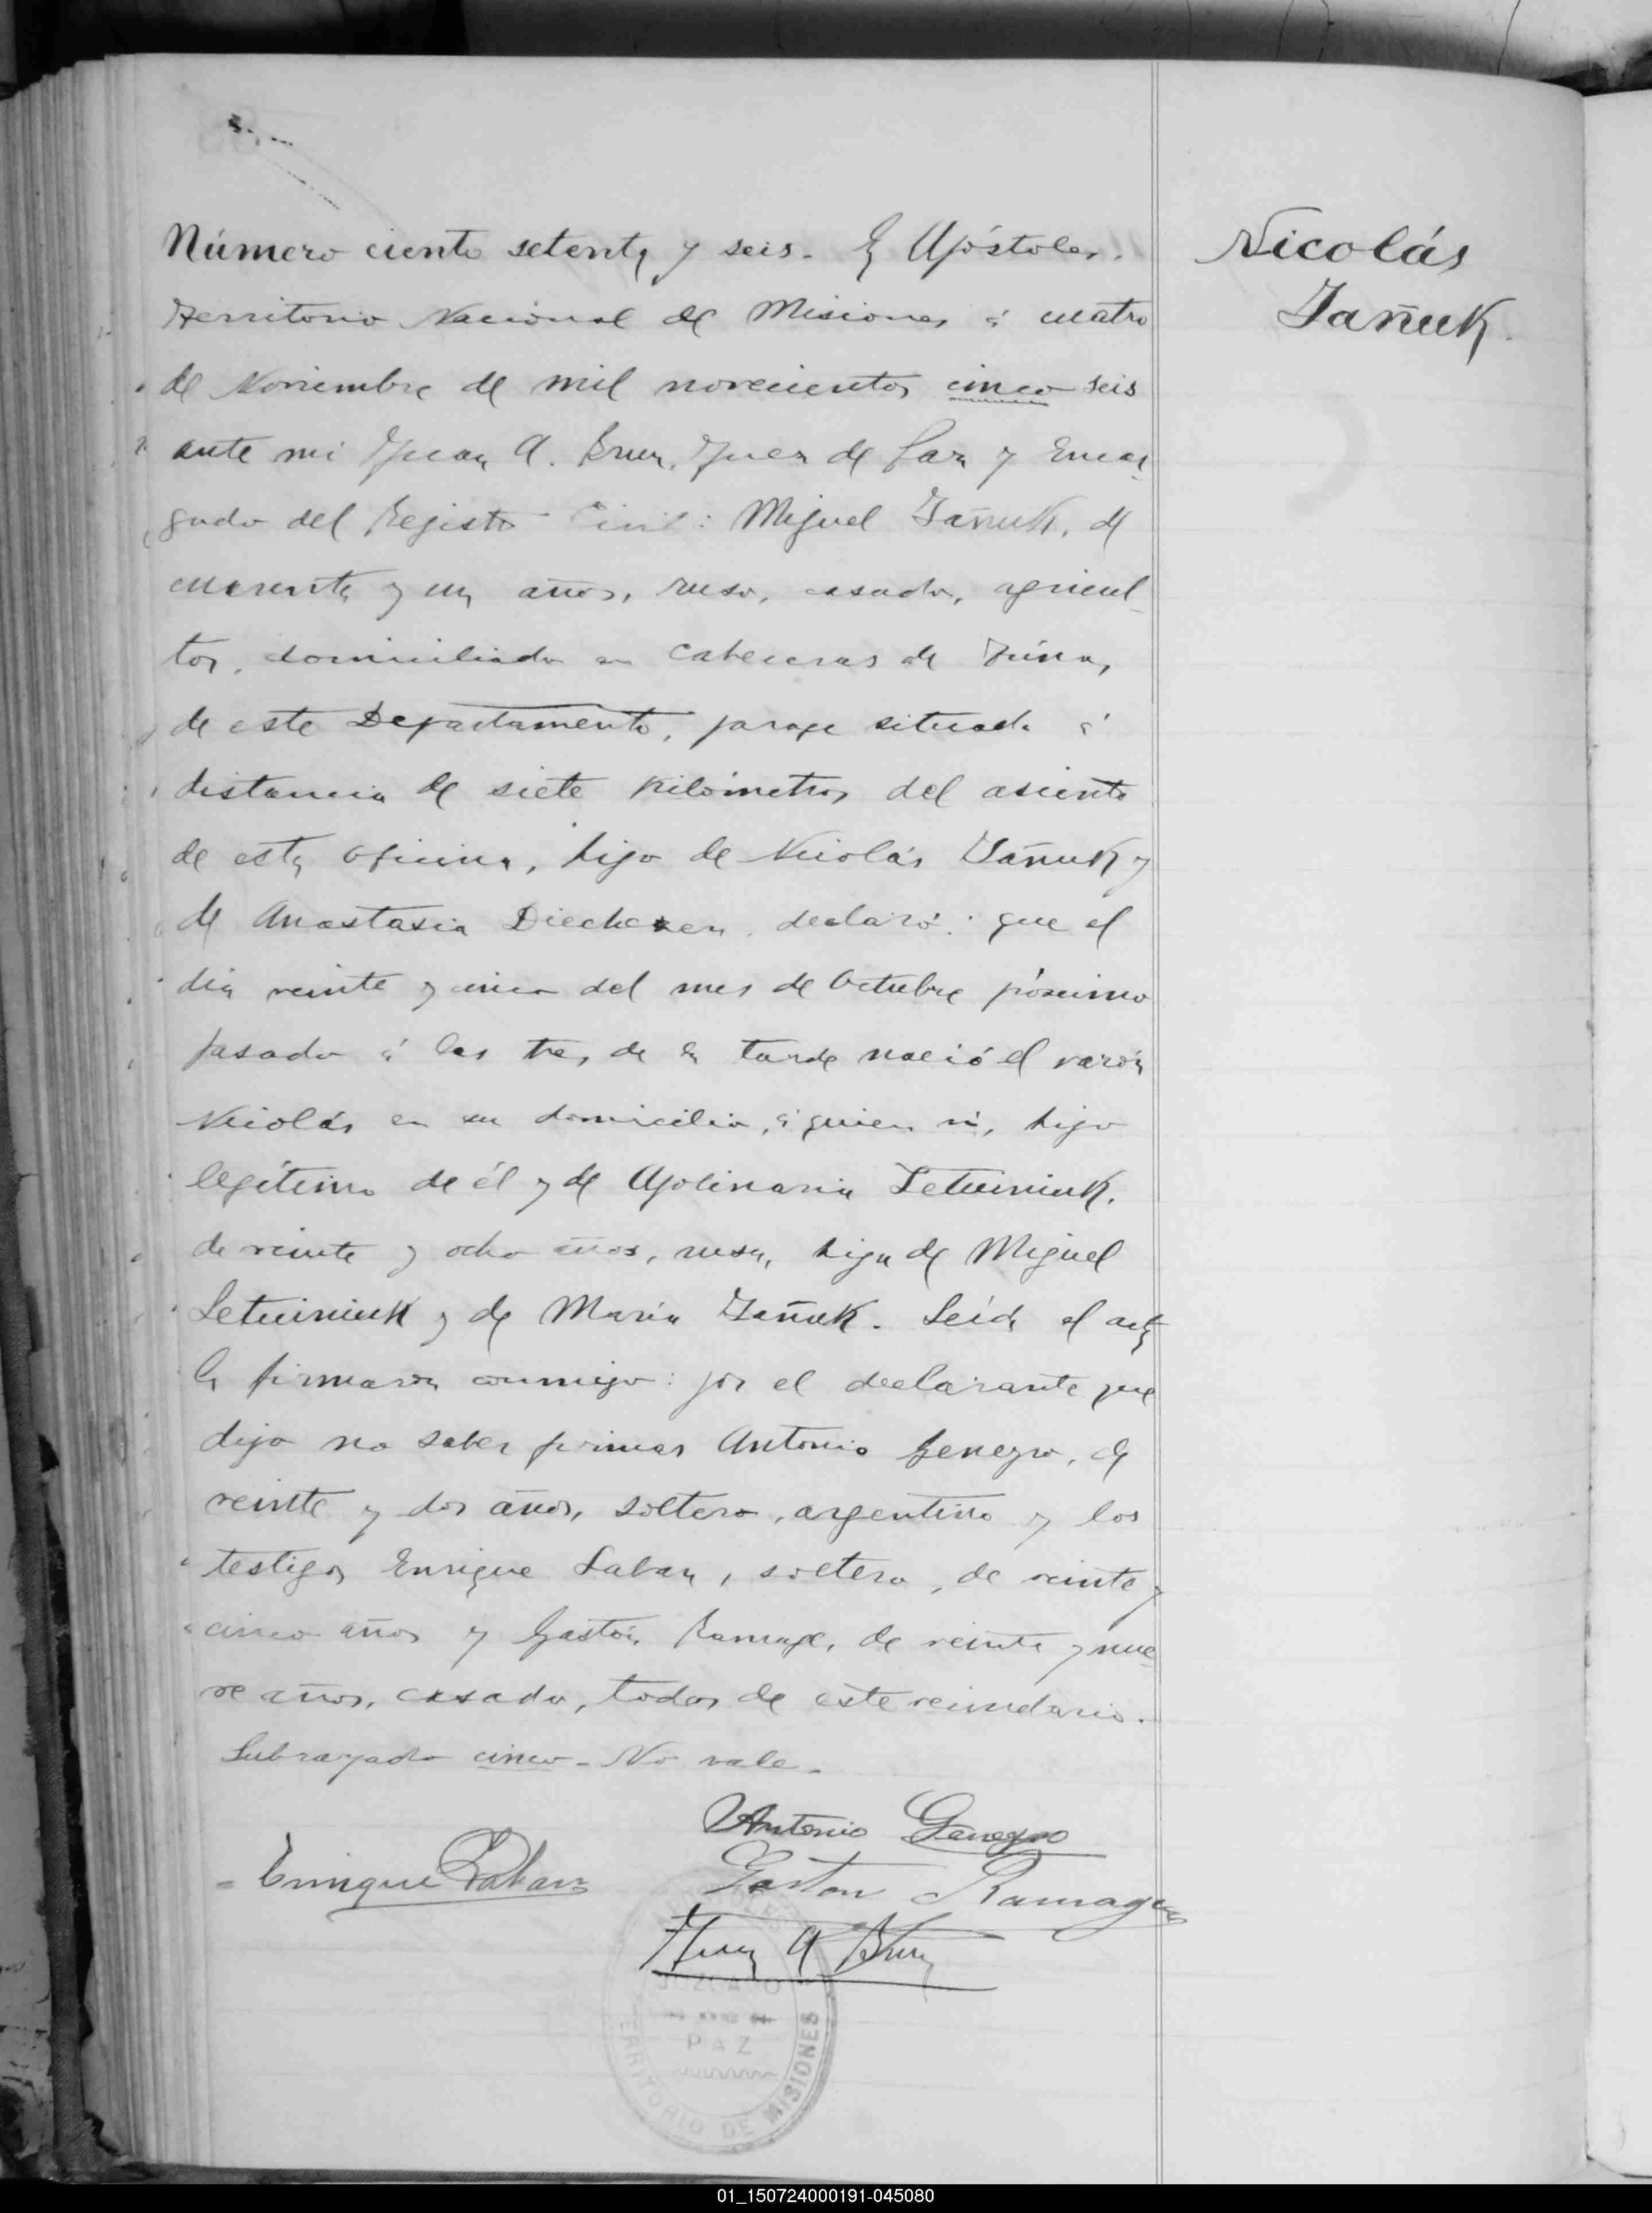 Número ciento setenta y seis. En Apóstoles,
Territorio Nacional de Misiones á cuatro
de Noviembre de mil novecientos cinco seis
ante mi Juan A. Brun, Juez de Paz y Encar-
gado del Registro Civil: Miguel Yañuk, de
cuarenta y un años, ruso, casado, agricul-
tor, domiciliado en Cabeceras de
de este Departamento, paraje situado á
distancia de siete kilómetros del asiento
de esta oficina, hijo de Nicolás Yañuk y
de Anastasia declaró: que el
dia veinte y cinco del mes de Octubre próximo
pasado á las tres de la tarde nació el varón
Nicolás en su domicilio, á quien ví, hijo
legítimo de él y de Apolinaria Letviniuk,
de veinte y ocho años, rusa, hija de Miguel
Letviniuk y de María Yañuk. Leída el acta
la firmaron conmigo: por el declarante que
dijo no saber firmar Antonio Genegro, de
veinte y dos años, soltero, argentino y los
testigos Enrique Laban, soltero, de veinte y
cinco años y Gastón Ramage, de veinte y nue-
ve años, casado, todos de este vecindario.
Subrayado cinco - No vale.
Antonio Genegro
Enrique Laban
Gaston Ramage
Juan A Brun
JUZGADO
PAZ
TERRITORIO DE MISIONES
Nicolás
Yañuk.
01_150724000191-045080